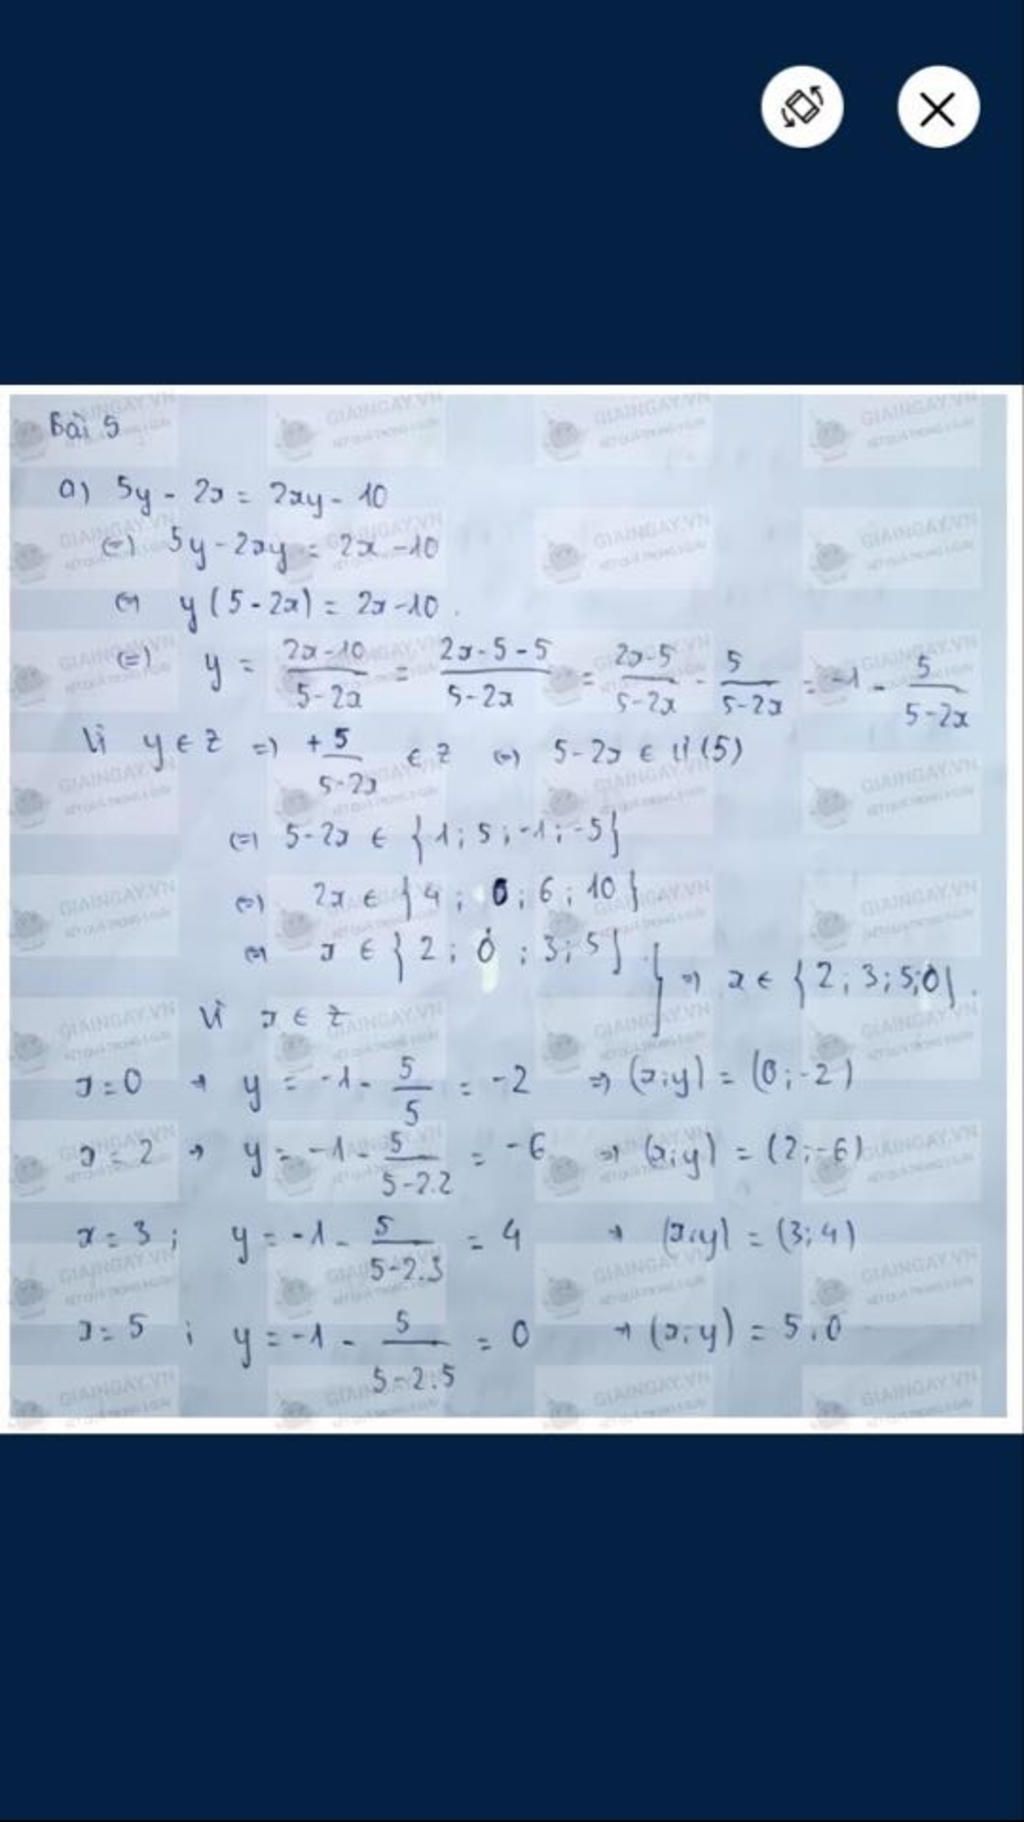 Bài 5
a) 5y - 2x = 2xy - 10
(=) 5y - 2xy = 2x - 10
(=) y(5 - 2x) = 2x - 10.
(=) y = \frac{2x-10}{5-2x} = \frac{2x-5-5}{5-2x} = \frac{2x-5}{5-2x} - \frac{5}{5-2x} = -1 - \frac{5}{5-2x}
Vì y ∈ Z =) \frac{+5}{5-2x} ∈ Z (=) 5-2x ∈ Ư(5)
(=) 5-2x ∈ {1; 5; -1; -5}
(=) 2x ∈ {4; 0; 6; 10}
(=) x ∈ {2; 0; 3; 5}
Vì x ∈ Z } =) x ∈ {2; 3; 5; 0}.
x = 0 → y = -1 - \frac{5}{5} = -2 =) (x;y) = (0; -2)
x = 2 → y = -1 - \frac{5}{5-2.2} = -6 =) (x;y) = (2; -6)
x = 3; y = -1 - \frac{5}{5-2.3} = 4 → (x;y) = (3; 4)
x = 5; y = -1 - \frac{5}{5-2.5} = 0 → (x;y) = 5;0
GIAINGAY.VN
KẾT QUẢ TRONG 5 GIÂY